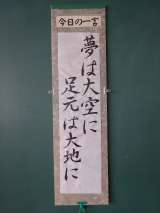 今日の一言
夢は大空に
足元は大地に